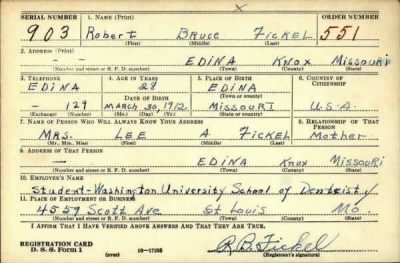 x
SERIAL NUMBER 1. NAME (Print) ORDER NUMBER
903 Robert Bruce Fickel 551
(First) (Middle) (Last)
2. ADDRESS (Print)
— EDINA Knox MISSOURI
(Number and street or R. F. D. number) (Town) (County) (State)
3. TELEPHONE 4. AGE IN YEARS 5. PLACE OF BIRTH 6. COUNTRY OF CITIZENSHIP
EDINA 28 EDINA
DATE OF BIRTH (Town or county)
— 129 MARCH 30, 1912 MISSOURI U.S.A.
(Exchange) (Number) (Mo.) (Day) (Yr.) (State or country)
7. NAME OF PERSON WHO WILL ALWAYS KNOW YOUR ADDRESS 8. RELATIONSHIP OF THAT PERSON
MRS. LEE A FICKEL Mother
(Mr., Mrs., Miss) (First) (Middle) (Last)
9. ADDRESS OF THAT PERSON
— EDINA Knox MISSOURI
(Number and street or R. F. D. number) (Town) (County) (State)
10. EMPLOYER'S NAME
Student-Washington University School of Dentristy
11. PLACE OF EMPLOYMENT OR BUSINESS
4559 Scott Ave St Louis Mo.
(Number and street or R. F. D. number) (Town) (County) (State)
I AFFIRM THAT I HAVE VERIFIED ABOVE ANSWERS AND THAT THEY ARE TRUE.
REGISTRATION CARD R. B. Fickel
D. S. S. Form 1 (over) 16—17105 (Registrant's signature)